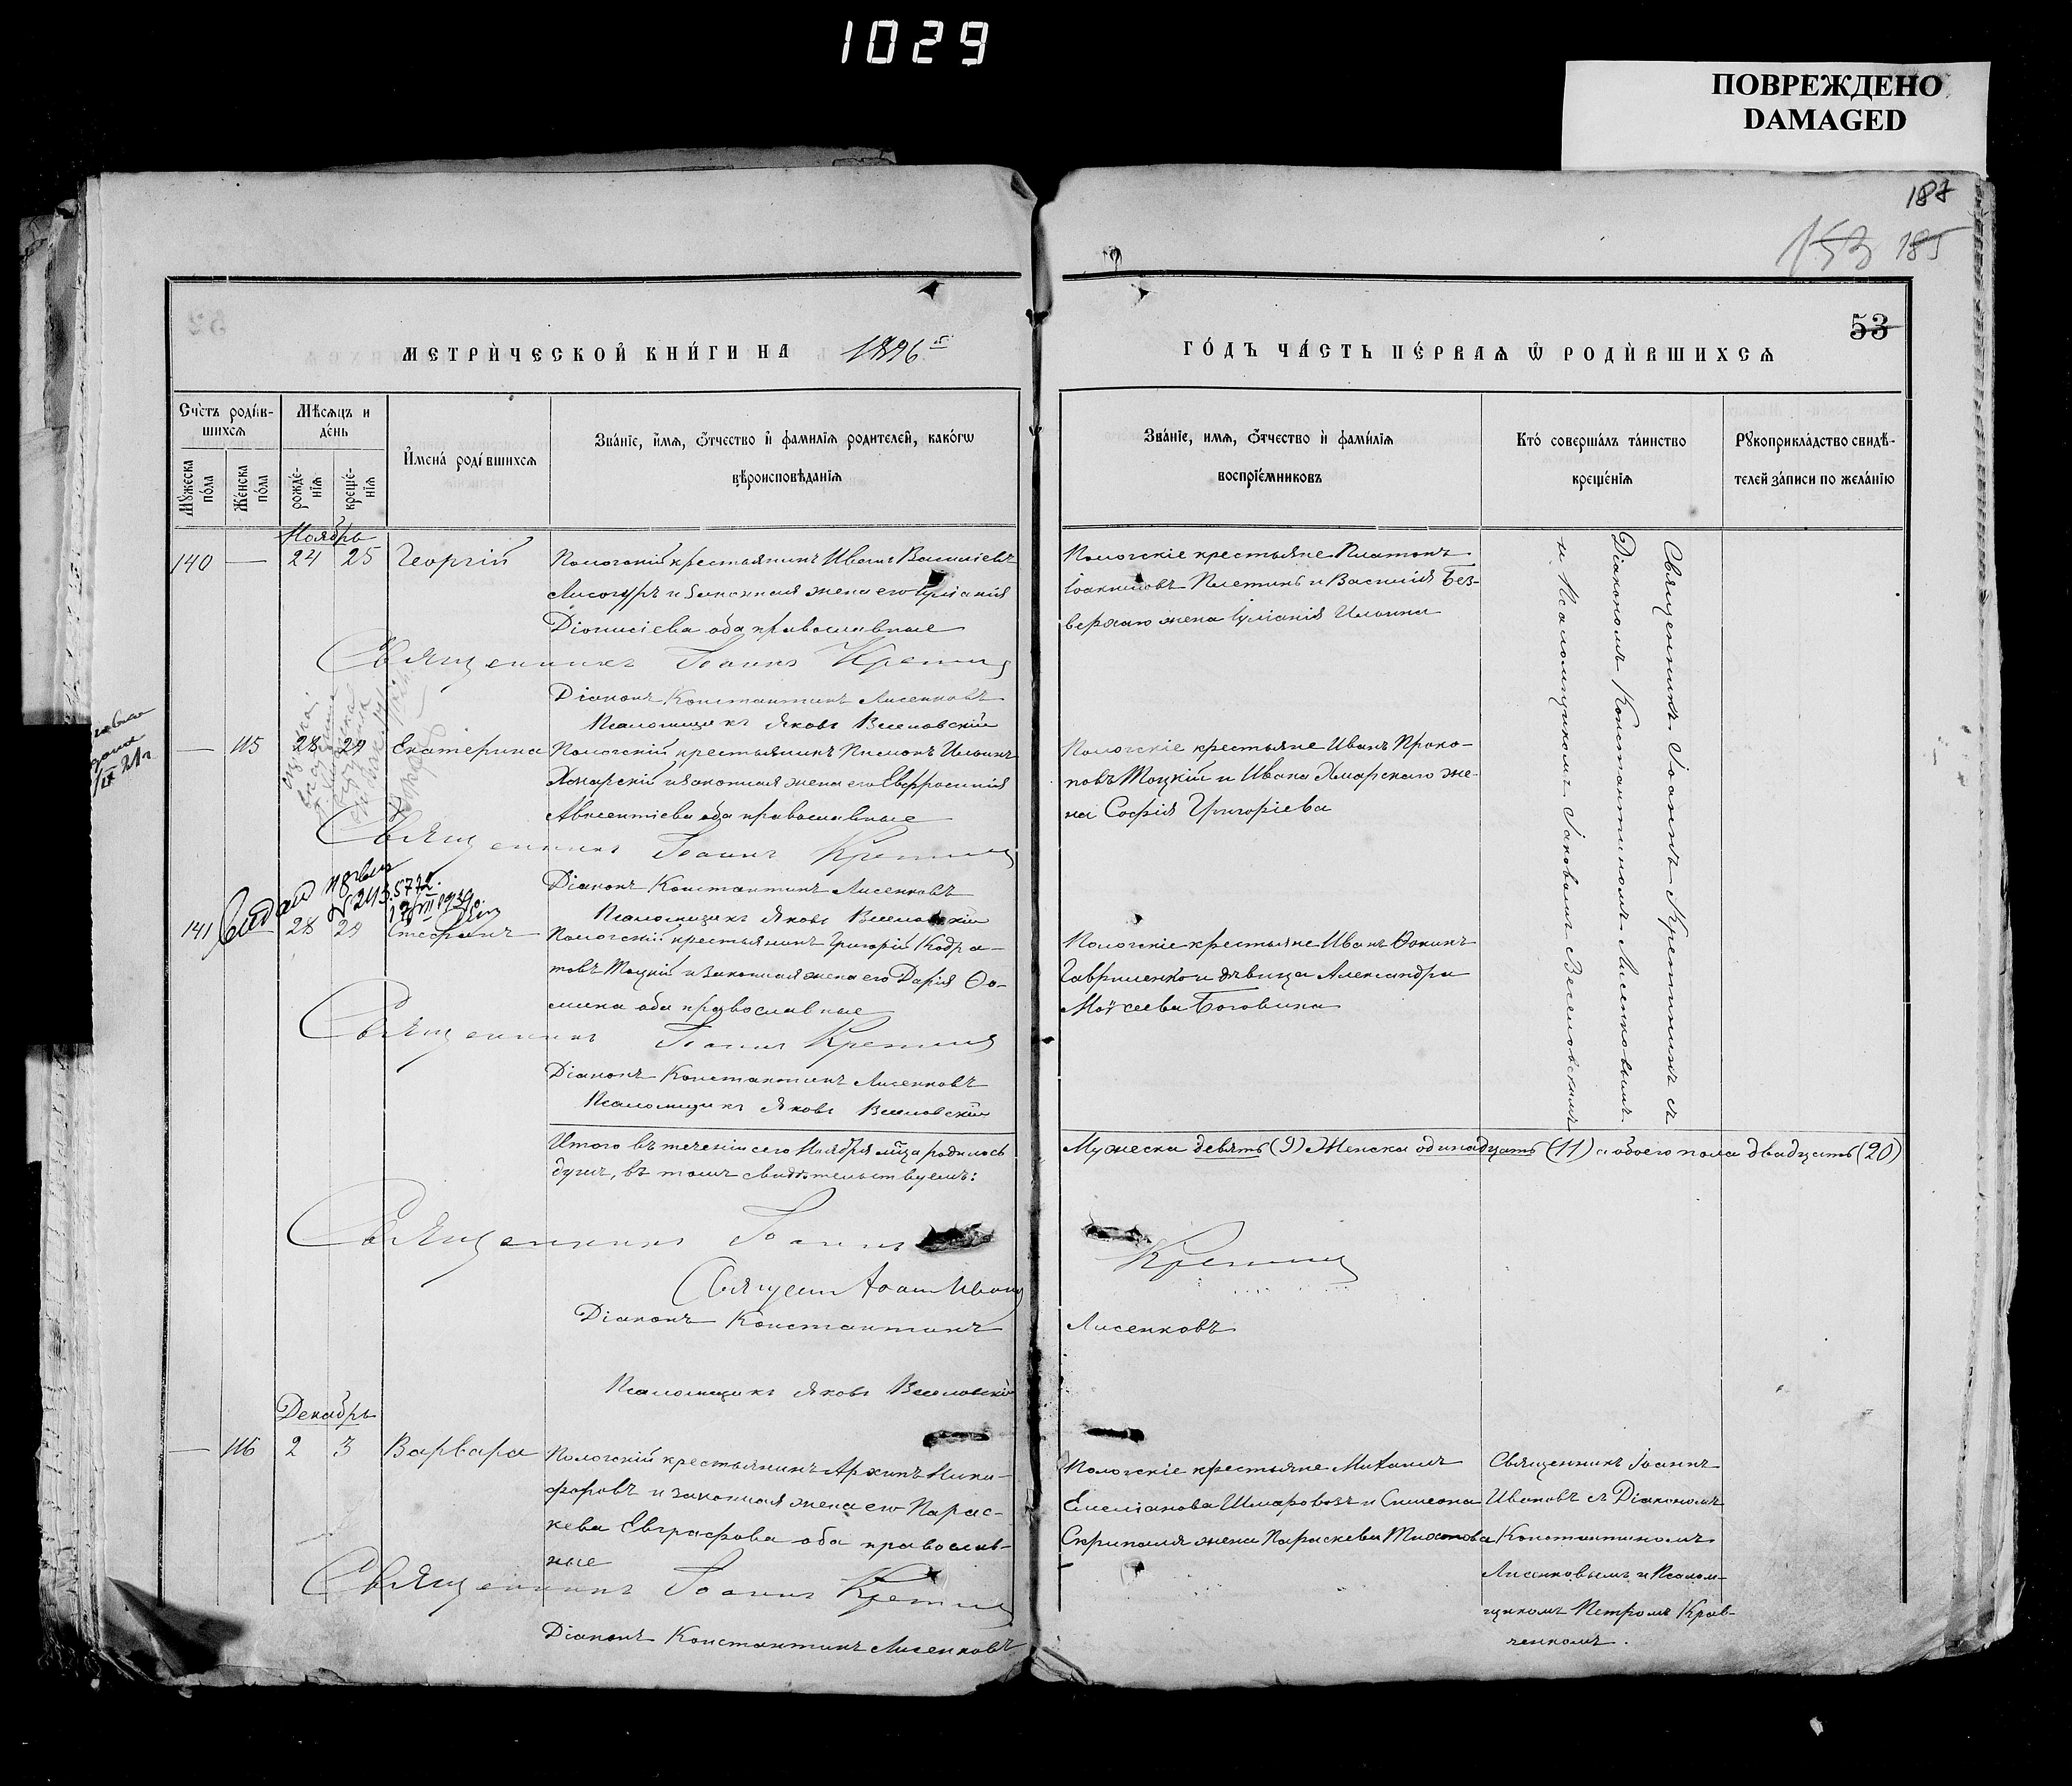 1029
ПОВРЕЖДЕНО
DAMAGED
187
153 185
53
МЕТРИ́ЧЕСКОЙ КНИ́ГИ НА 1896 г.
ГО́ДЪ ЧА́СТЬ ПЕ́РВАѦ Ѿ РОДИ́ВШИХСѦ
Сче́тъ роди́в-
шихсѧ
Мѣ́сѧцъ и
де́нь
Мꙋ́жеска
по́ла
Же́нска
по́ла
рожде́-
нїѧ
креще́-
нїѧ
И҆мена̀ роди́вшихсѧ
Зва́нїе, и҆́мѧ, ѻ҆́тчество и҆ фамилїѧ роди́телей, како́гѡ
вѣроисповѣ́данїѧ
Зва́нїе, имѧ, ѻ҆́тчество и҆ фами́лїѧ
воспрїе́мниковъ
Кто́ соверша́лъ та́инство
креще́нїѧ
Рꙋкоприкла́дство свидѣ́-
телей за́писи по жела́нїю
Ноябрь
140 — 24 25 Георгій
Пологскій крестьянинъ Иванъ Василіевъ
Лисогуръ и законная жена его Іуліанія
Діонисіева оба православные
Священникъ Іоаннъ
Діаконъ Константинъ Лисенковъ
Псаломщикъ Яковъ Веселовскій
Пологскіе крестьяне Платонъ
Іоакимовъ Плетинь и Василія Без-
верхаго жена Іуліанія Ильина
Священникъ Іоаннъ Кретининъ съ
Діакономъ Константиномъ Лисенковымъ
и Псаломщикомъ Іаковомъ Веселовскимъ
— 115 28 29 Екатерина
Пологскій крестьянинъ Пилипъ Ильинъ
Хмарскій и законная жена его Евфросинія
Авксентіева оба православные
Священникъ Іоаннъ
Діаконъ Константинъ Лисенковъ
Псаломщикъ Яковъ Веселовскій
Пологскіе крестьяне Иванъ Проко-
повъ Тоцкій и Ивана Хмарскаго же-
на Софія Григоріева
141 28 29 Стефанъ
Пологскій крестьянинъ Григорій Кодра-
товъ Тоцкій и законная жена его Дарія Ѳо-
мина оба православные
Священникъ Іоаннъ
Діаконъ Константинъ Лисенковъ
Псаломщикъ Яковъ Веселовскій
Пологскіе крестьяне Иванъ Ѳокинъ
Гавриленко и дѣвица Александра
Моѵсеева Боговина
Итого въ теченіи сего Ноября м-ца родилось
Мужеска девять (9) Женска одинадцать (11) а обоего пола двадцать (20)
душъ, въ томъ свидѣтельствуемъ:
Священникъ Іоаннъ
Діаконъ Константинъ Лисенковъ
Псаломщикъ Яковъ Веселовскій
Декабрь
— 116 2 3 Варвара
Пологскій крестьянинъ Архипъ Ники-
форовъ и законная жена его Парас-
кева Евграфова оба православ-
ные
Священникъ Іоаннъ
Діаконъ Константинъ Лисенковъ
Пологскіе крестьяне Михаилъ
Емеліановъ Шкаровозъ и Симеона
Скрипаля жена Параскева
Священникъ Іоаннъ
Ивановъ съ Діакономъ
Константиномъ
Лисенковымъ и Псалом-
щикомъ Петромъ Крав-
ченкомъ.